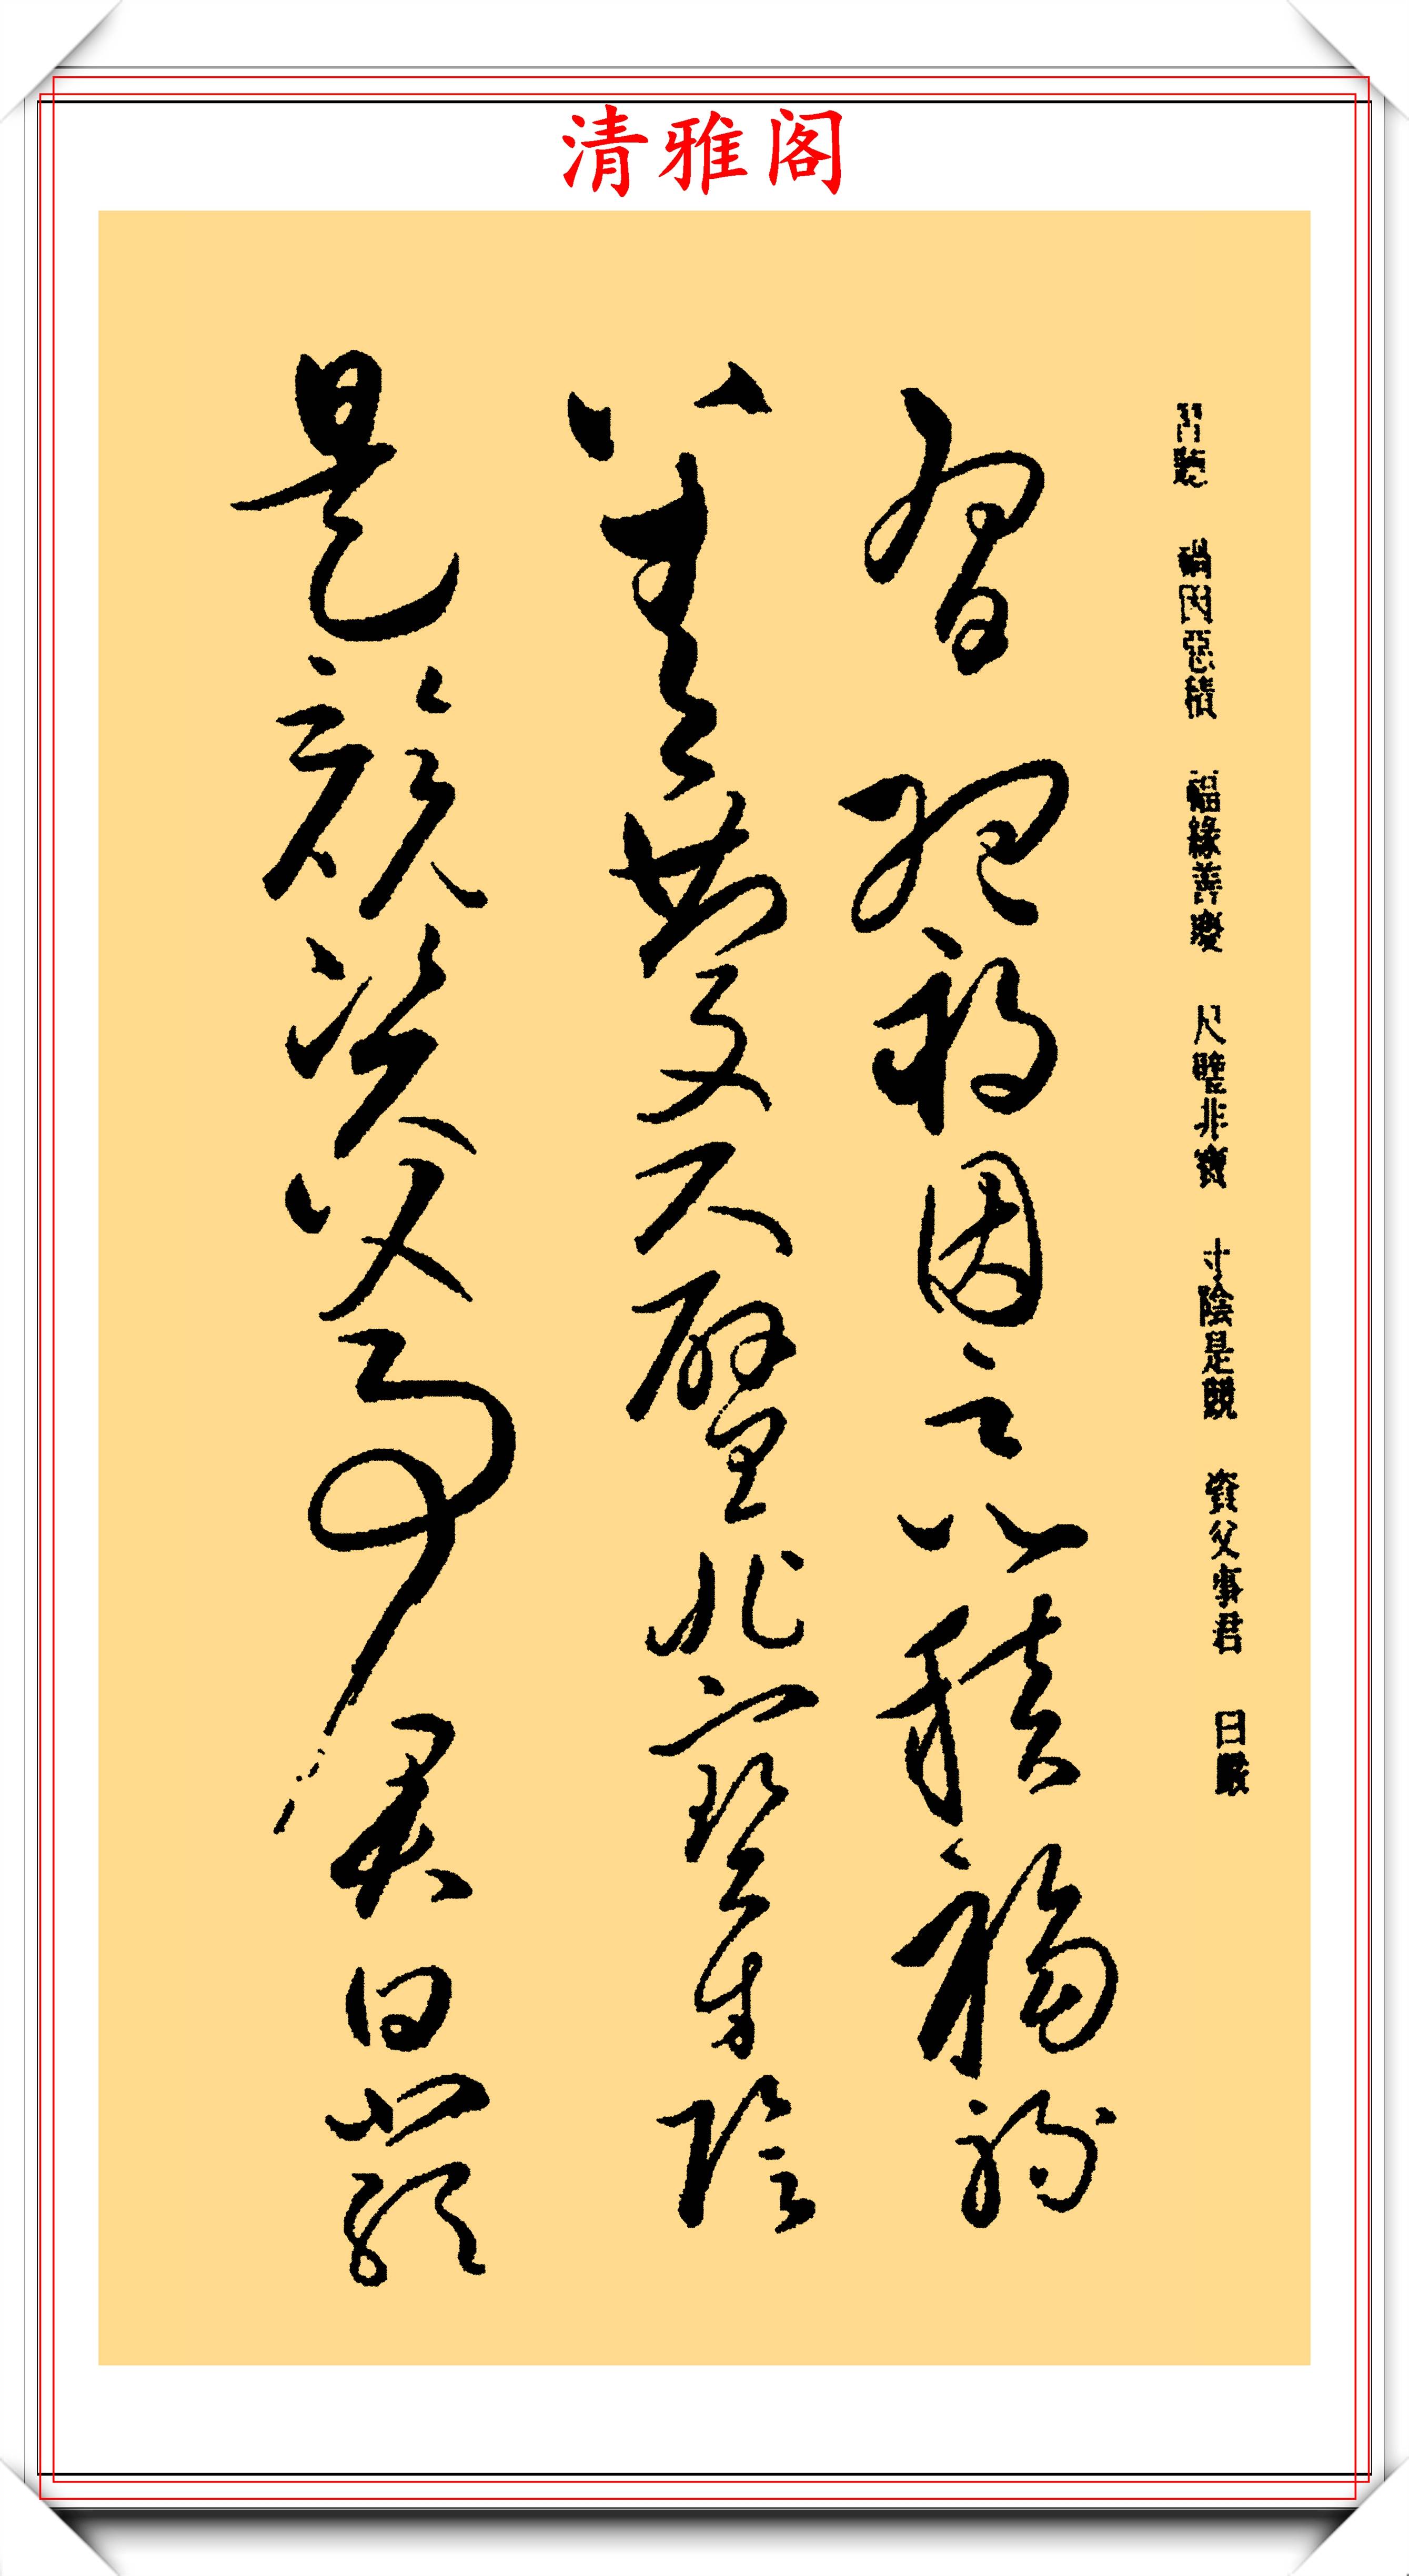 清雅阁
習聽 禍因惡積 福緣善慶 尺璧非寶 寸陰是競 資父事君 曰嚴
習聽禍因惡積福緣
善慶尺璧非寶寸陰
是競資父事君曰嚴